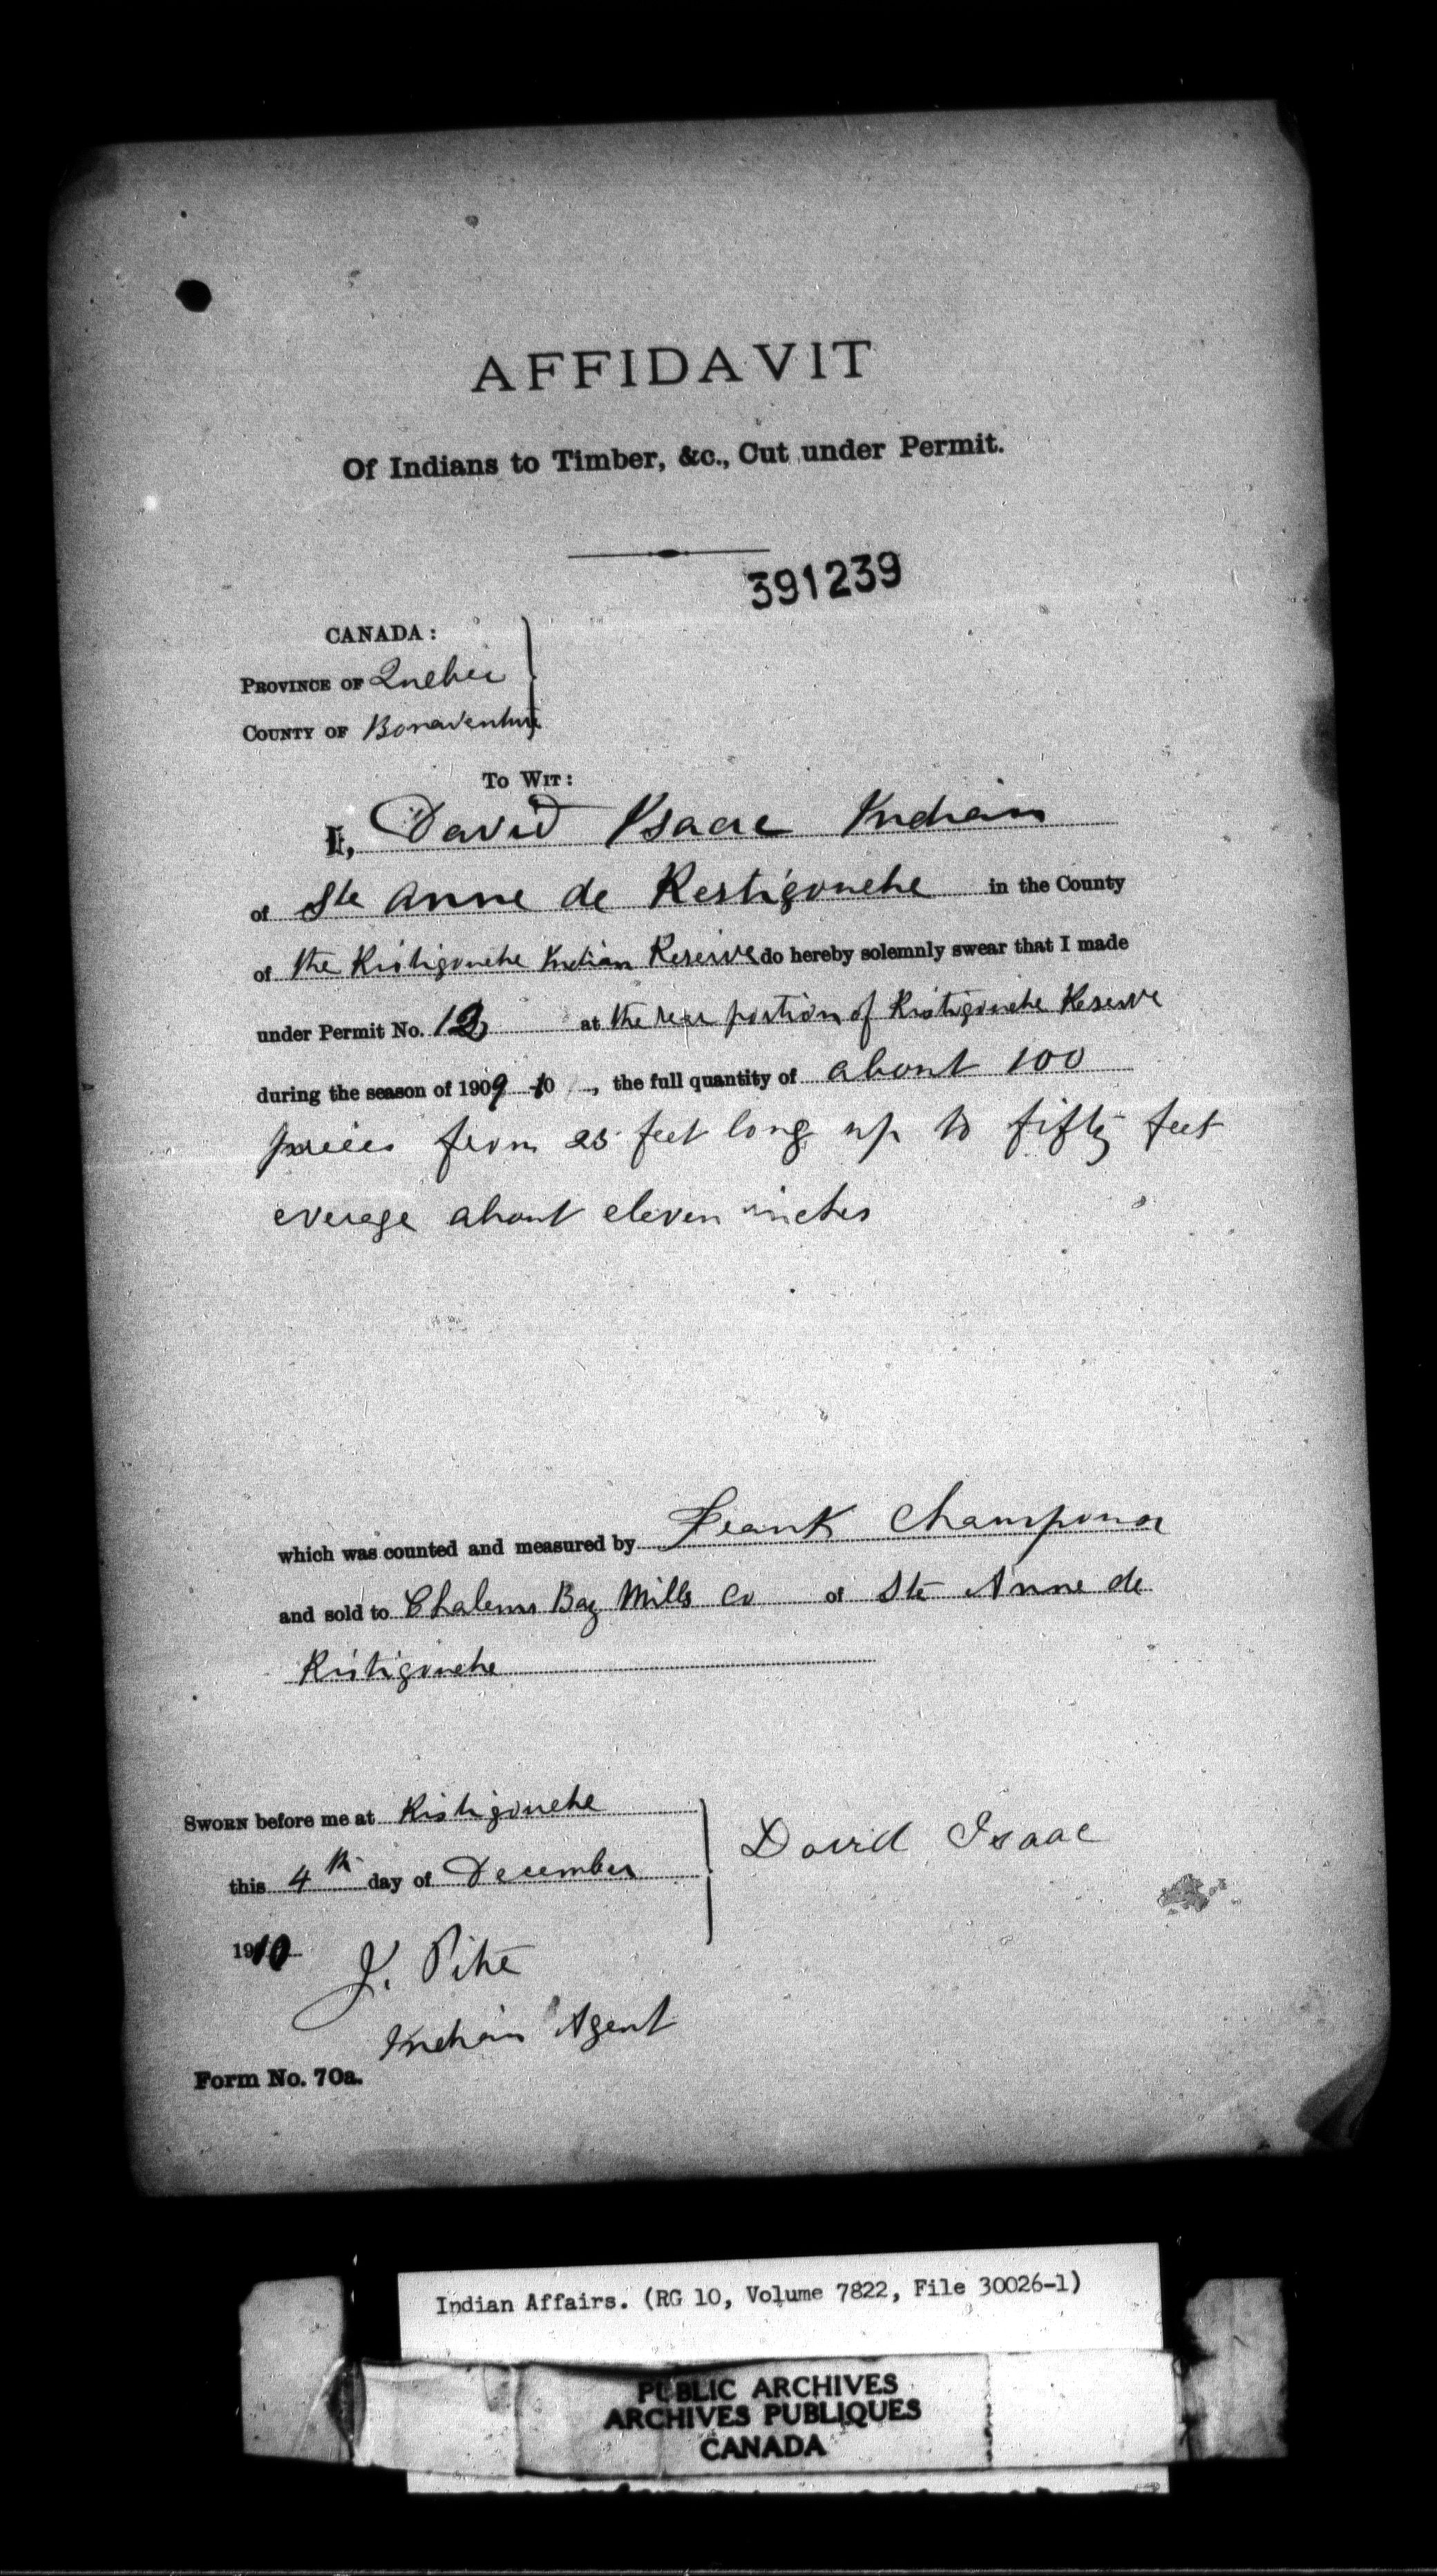 AFFIDAVIT
Of Indians to Timber, &c., Cut under Permit.
391239
CANADA:
PROVINCE OF Quebec
COUNTY OF Bonaventure
TO WIT:
I, David Isaac Indian
of Ste Anne de Restigouche in the County
of the Ristigouche Indian Reserve do hereby solemnly swear that I made
under Permit No. 12 at the rear portion of Ristigouche Reserve
during the season of 1909-10, the full quantity of about 100
pieces from 25 feet long up to fifty feet
everage about eleven inches
which was counted and measured by Frank
and sold to Chaleurs Bay Mills Co of Ste Anne de
Ristigouche
SWORN before me at Ristigouche
this 4th day of December
David Isaac
1910
J. Pitre
Indian Agent
Form No. 70a.
Indian Affairs. (RG 10, Volume 7822, File 30026-1)
PUBLIC ARCHIVES
ARCHIVES PUBLIQUES
CANADA